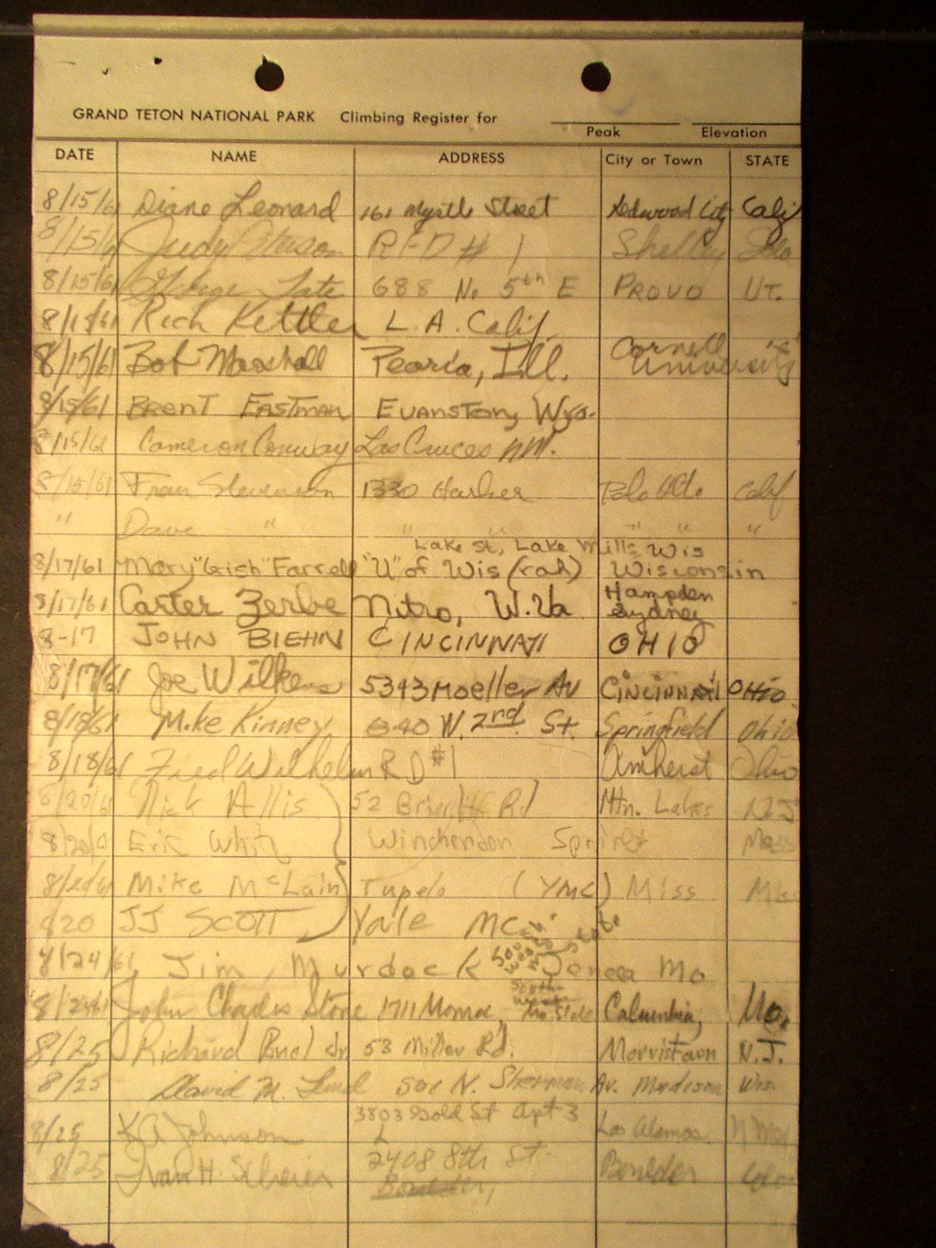 GRAND TETON NATIONAL PARK Climbing Register for
Peak Elevation
DATE NAME ADDRESS City or Town STATE
8/15/61 Diane Leonard 161 Myrtle Street Redwood City Calif
8/15/61 Judy RFD # 1 Shelley
8/15/61 George Tate 688 No 5th E PROVO UT.
8/15/61 Rich Kettler L.A. Calif
8/15/61 Bob Marshall Peoria, Ill. Cornell University
8/15/61 BRENT EASTMAN EVANSTON, WYO.
8/15/61 Cameron Conway Las Cruces NM.
8/15/61 Fran Stevenson 1330 Harker Palo Alto Calif
" Dave " " " " " "
Lake St, Lake Mills Wis
8/17/61 Mary "Gish" Farrell "U" of Wis (rah) Wisconsin
8/17/61 Carter Zerbe Nitro, W.Va Hampden Sydney
8-17 JOHN BIEHN CINCINNATI OHIO
8/17/61 Joe Wilkens 5343 Moeller Av CINCINNATI OHIO
8/18/61 Mike Kinney, 640 W. 2nd St. Springfield Ohio
8/18/61 Fred Wilhelm R D #1 Amherst Ohio
8/20/61 Nick Allis 52 Rd Mtn. Lakes N.J
8/20/61 Eric White Winchendon Springs Mass
8/20/61 Mike McLain Tupelo (YMC) Miss Miss
8/20 JJ SCOTT Yale MC
8/24/61, Jim, Murdock Seneca Mo
8/24/61 John Charles Stone 1711 Monroe, Columbia, Mo.
8/25 Richard Buel Jr 53 Miller Rd. Morristown N.J.
8/25 David M. Lund 501 N. Sherman Av. Madison Wis.
3803 Gold St Apt 3
8/25 KA Johnson Los Alamos N Mex
8/25 Ivan H. Scheier 2408 8th St. Boulder Colo
Boulder,